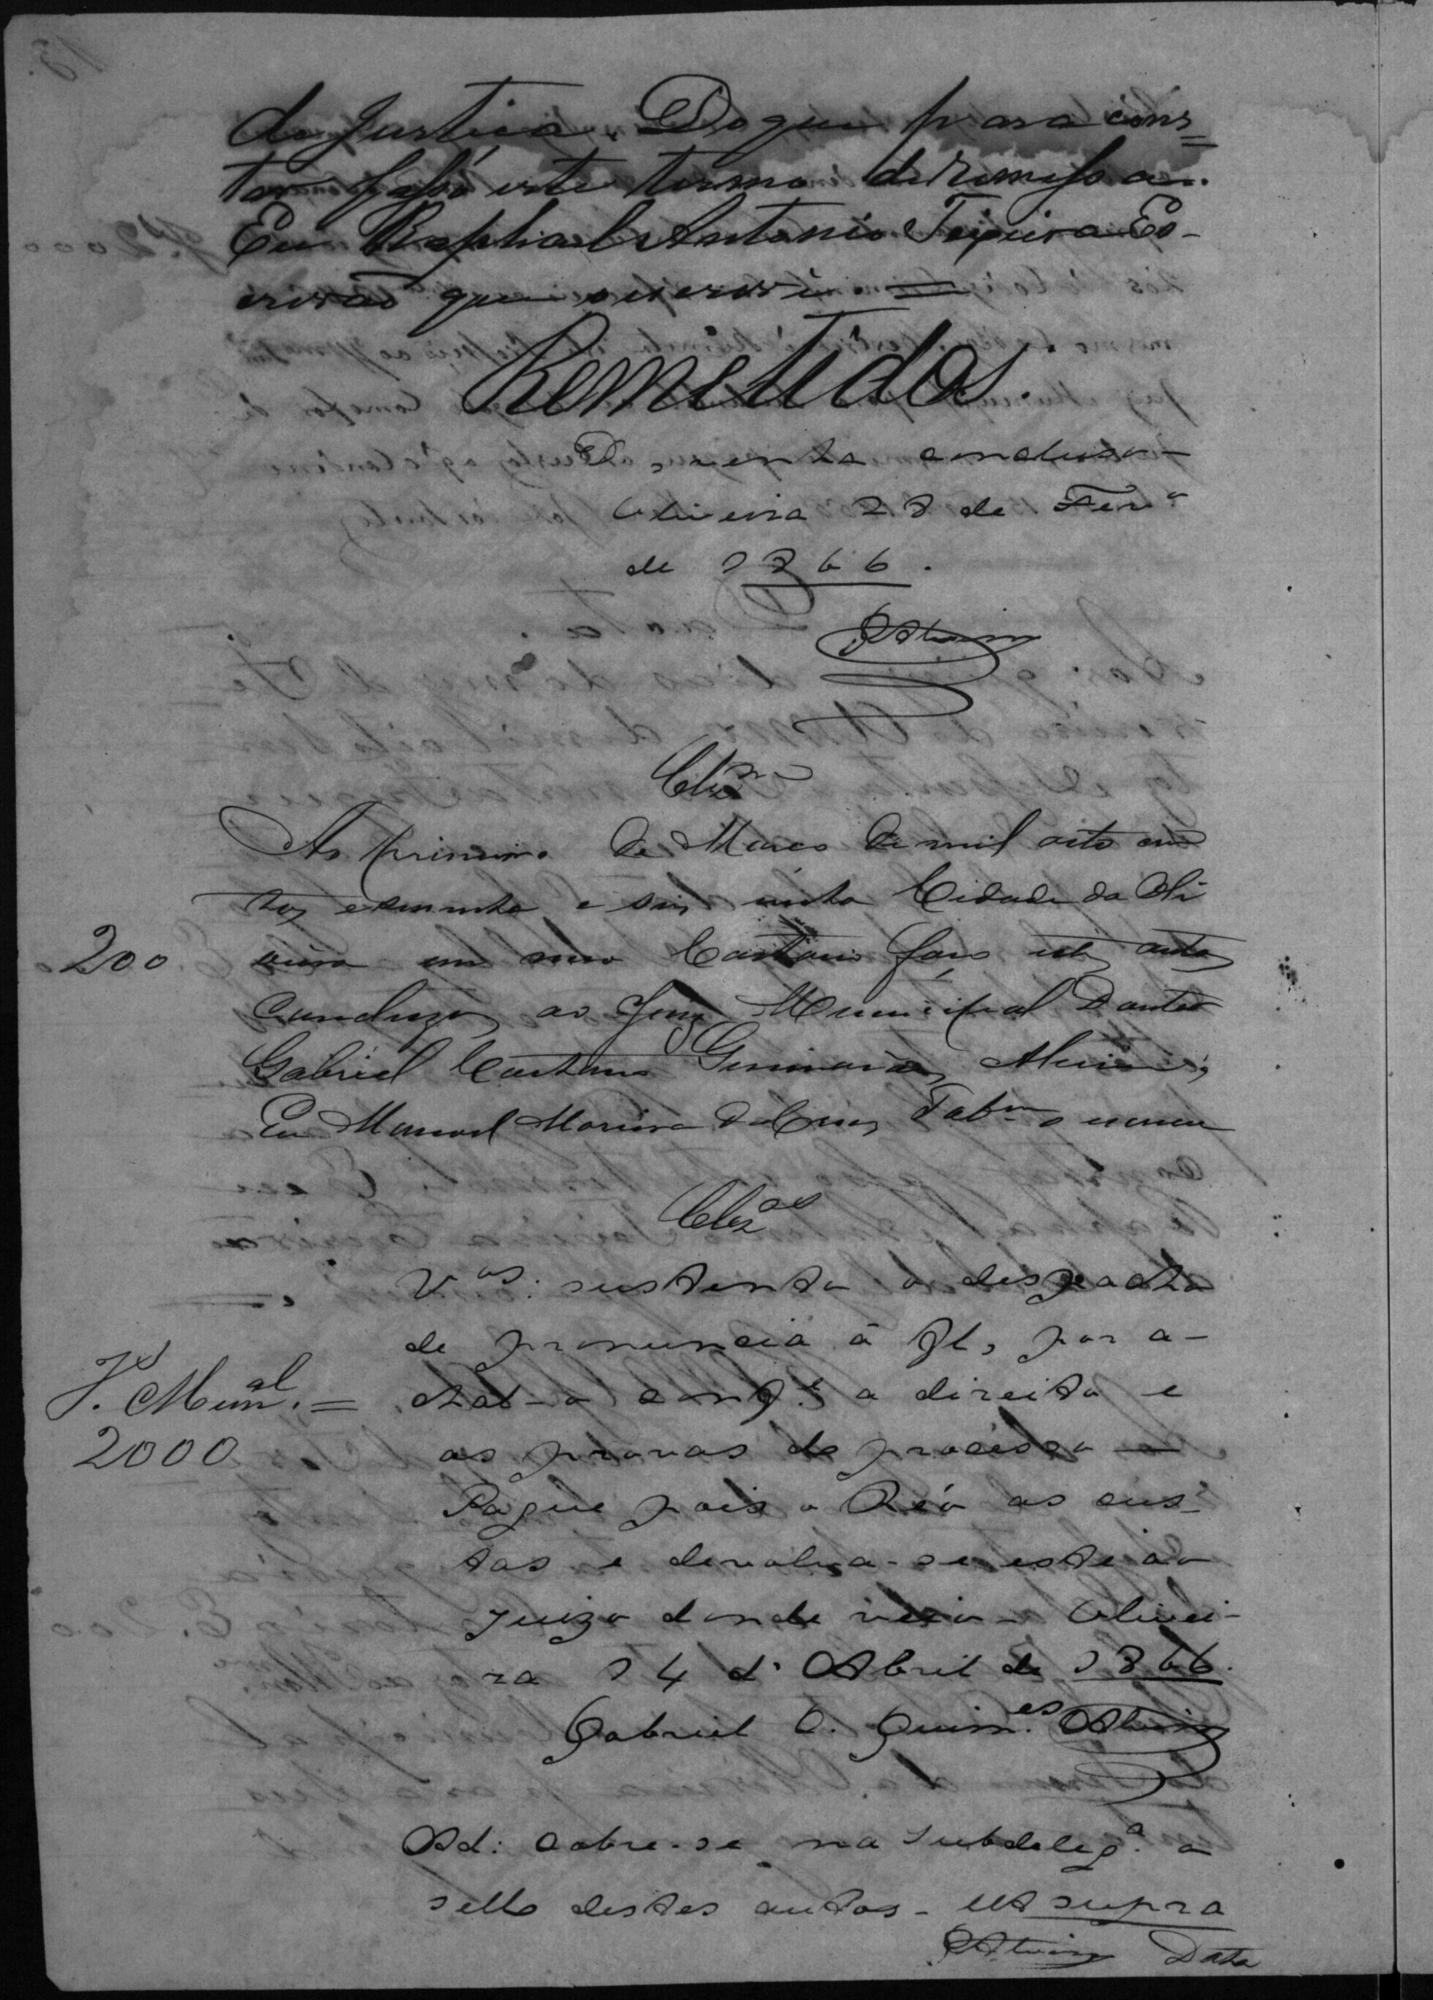 da Justiça. Do que para cons=
tar faço este termo de remessa.
Eu Raphael Antonio Teixeira Es-
crivão que escrevi =
Remetidos.
D, e venha concluso—
Oliveira 28 de Fevr.o
de 1866.
Cls.
Ao primeiro de Março de mil oito cen
tos e secenta e seis nesta Cidade da Oli
200
veira em meo Cartorio faço estes autos
concluzos ao Juiz Municipal Doutor
Gabriel Caetano Guimarães
Eu Manoel Moreira da Cruz Tab.am o escrevi
Clz.os
V.os: sustento o despacho
de pronuncia á fl, por a-
J. Mun.al =
chal-o conf.e a direito e
2000
as provas do processo —
Pague pois o Réo as cus-
tas e devolva-se este ao
Juizo donde veio— Olivei-
ra 14 d' Abril de 1866.
Gabriel C. Guim.es
Ad: cobre-se na Subdeleg.a o
sello destes autos - ut supra
Data